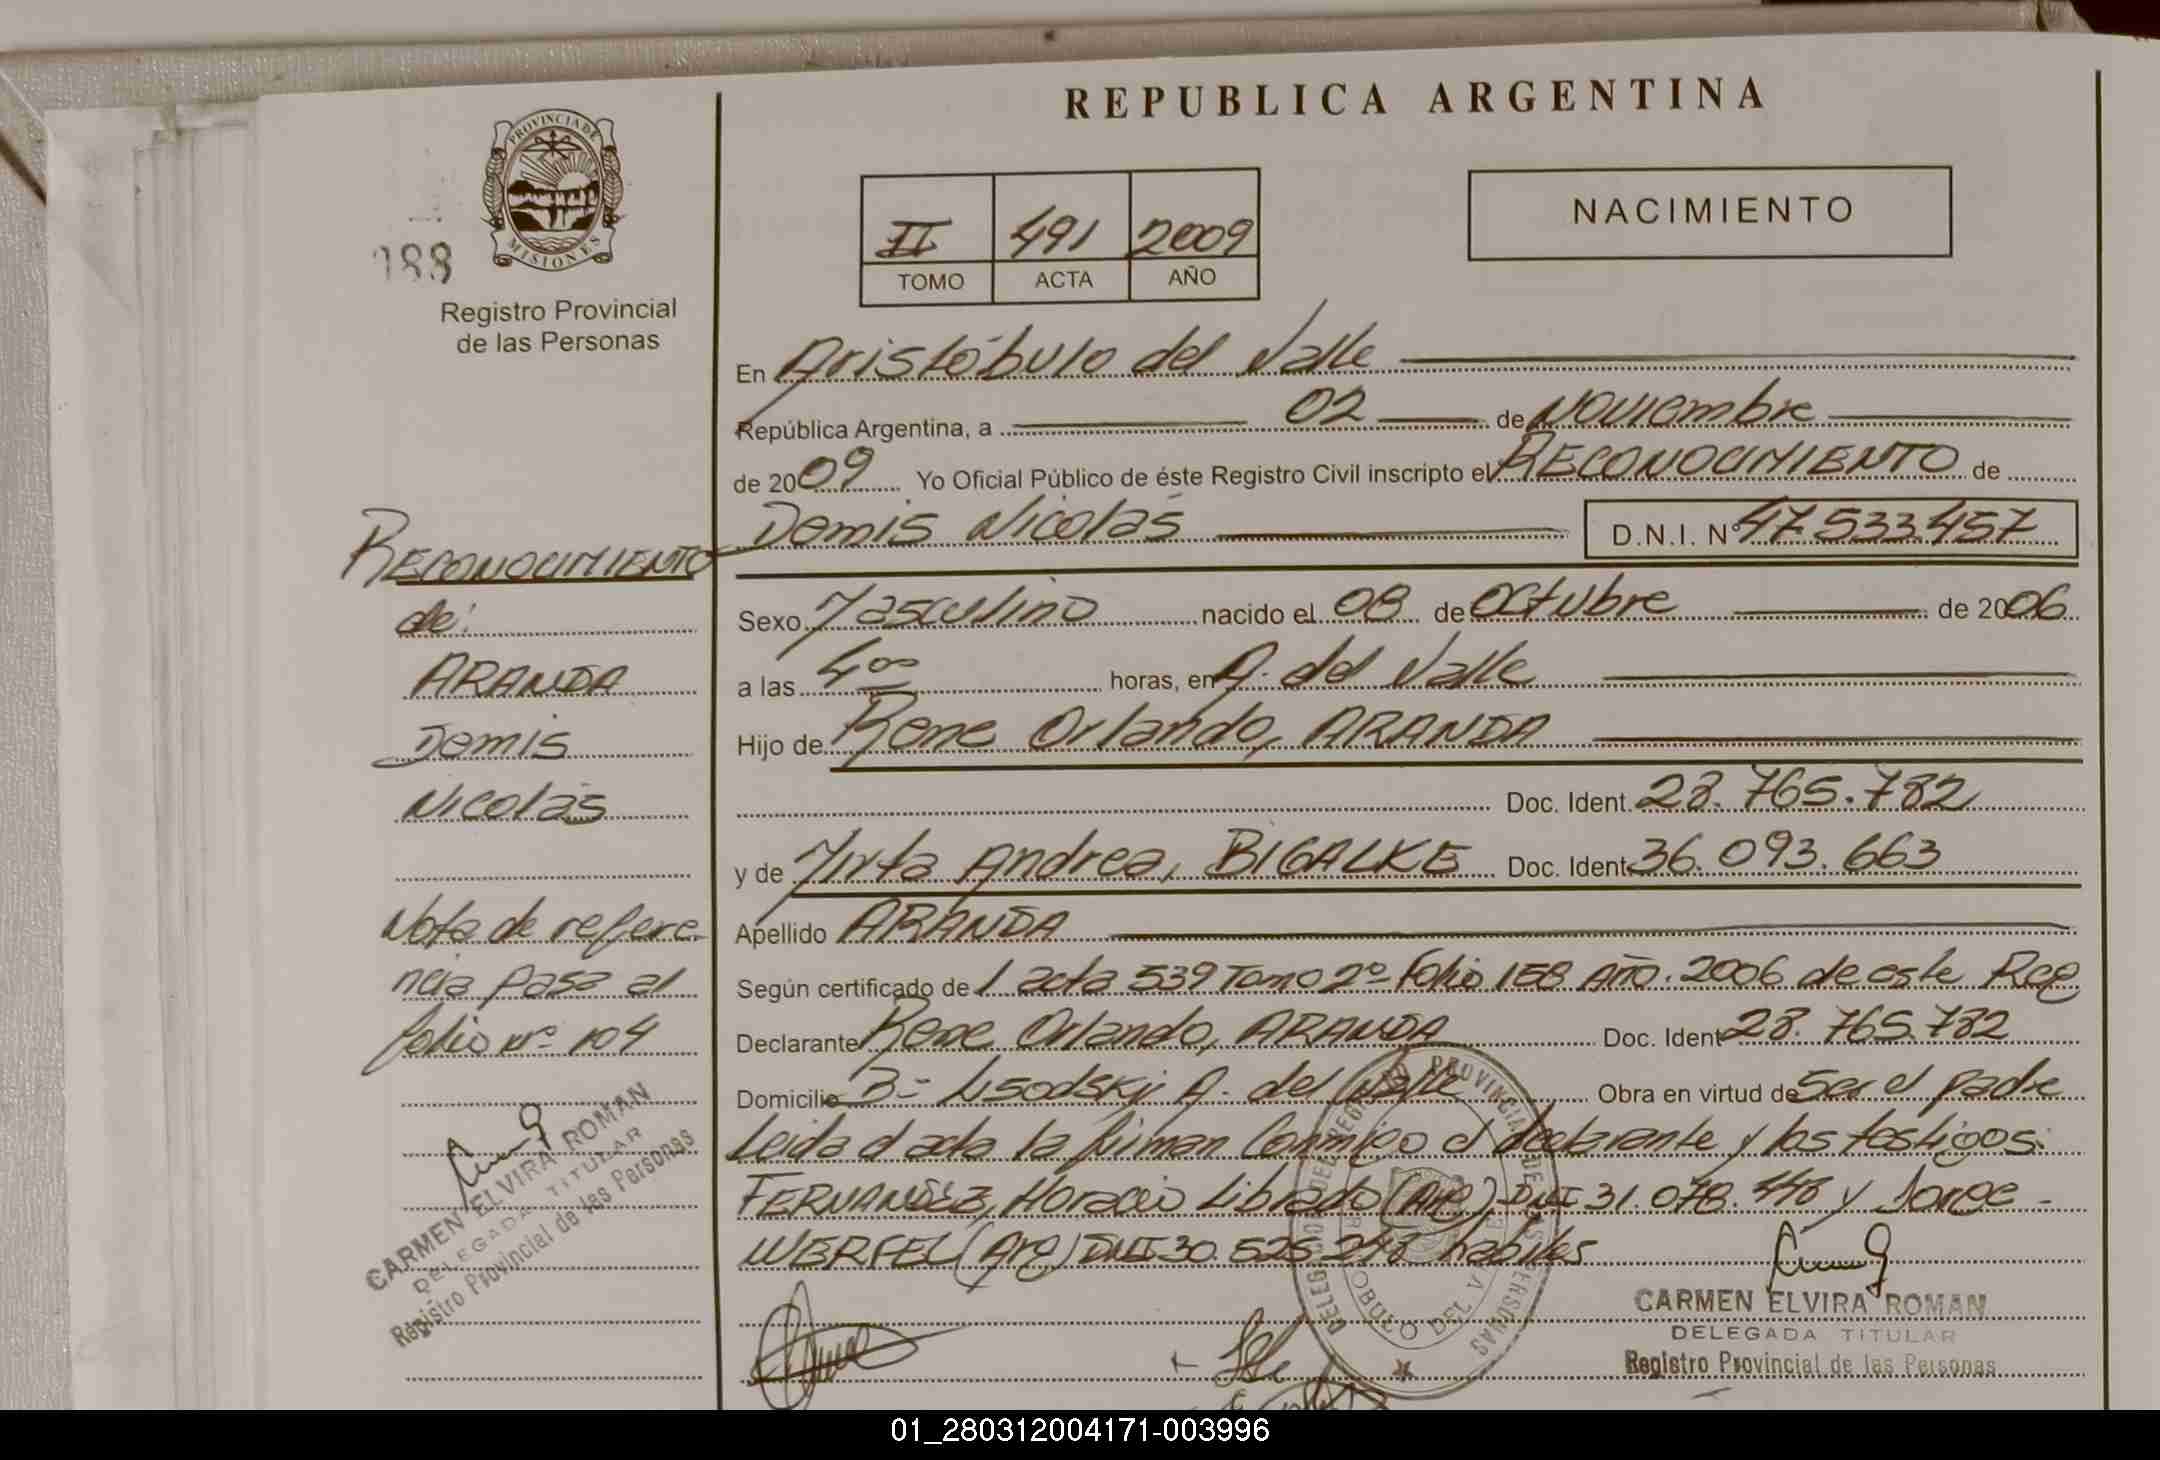 REPUBLICA ARGENTINA
PROVINCIA DE
MISIONES
188
Registro Provincial
de las Personas
II 491 2009
TOMO ACTA AÑO
NACIMIENTO
En Aristóbulo del Valle
República Argentina, a 02 de Noviembre
de 2009 Yo Oficial Público de éste Registro Civil inscripto el RECONOCIMIENTO de
Demis Nicolás D.N.I. Nº 47.533.457
Sexo Masculino nacido el 08 de Octubre de 2006
a las 4 00 horas, en A. del Valle
Hijo de Rene Orlando, ARANDA
Doc. Ident. 28.765.782
y de Mirta Andrea, BIGALKE Doc. Ident 36.093.663
Apellido ARANDA
Según certificado de 1 acta 539 Tomo 2º Folio 158 Año. 2006 de este Reg
Declarante Rene Orlando, ARANDA Doc. Ident 28.765.782
Domicilio Bº Lisodskij A. del Valle Obra en virtud de Ser el padre
Leida el acta la firman Conmigo el declarante y los testigos:
FERNANDEZ, Horacio Librado (Arg) DNI 31.078.448 y Jorge
WERFEL (Arg) DNI 30.525.248 habiles
CARMEN ELVIRA ROMAN
DELEGADA TITULAR
Registro Provincial de las Personas
RECONOCIMIENTO
de:
ARANDA
Demis
Nicolás
Nota de refere-
ncia pasa al
folio Nº 104
CARMEN ELVIRA ROMAN
DELEGADA TITULAR
Registro Provincial de las Personas
01_280312004171-003996